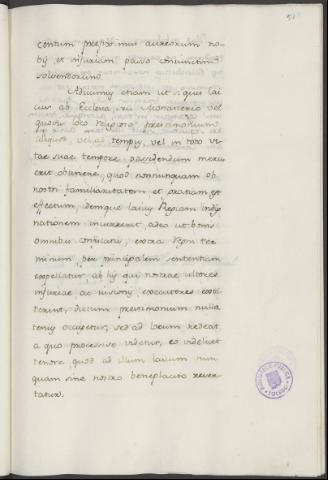 51
centum prǫximus aureorum no-
bis, et injuriam passo
solvendorum.
Adiicimus etiam ut si quis lai
cus ab Ecclesia, seu Monasterio vel
quovis loco religioso praestimonium
aliquod, vel ad tempus, vel in toto vi-
tae suae tempore possidendum meru
erit obtinere, quod nonnunquam ob
nostri familiaritatem, et gratiam est
effectum, demque laicus Regiam indig
nationem incurrerit, adeo ut bonis
omnibus confiscatis, extra Regni ter
minum, per principalem sententiam
expellatur, ab his qui nostrae ultores
injuriae ac iussionis executores exti-
terint, dictum prestimonium nulla
tenus occupetur, sed ad locum redeat,
a quo processisse videtur, eo videlicet
tenore quod ad illum laicum nun
quam sine nostro beneplacito rever
tatur.
BIBLIOTECA PUBLICA
TOLEDO